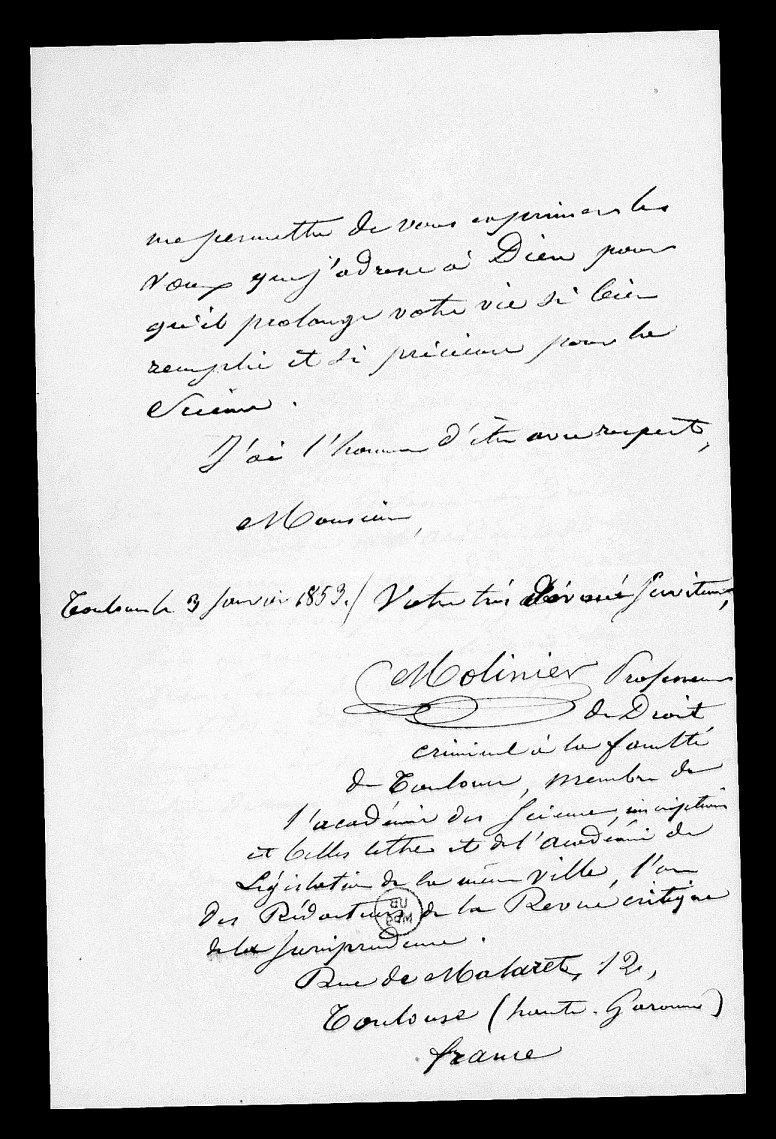 me permettre de vous exprimer les
vœux que j'adresse à Dieu pour
qu'il prolonge votre vie si bien
remplie et si précieuse pour la
Science.
J'ai l'honneur d'être avec respect,
Monsieur,
Toulouse le 3 Janvier 1853. / Votre très dévoué serviteur,
Molinier Professeur
de Droit
criminel à la faculté
de Toulouse, membre de
l'académie des Sciences, inscriptions
et belles lettres et de l'académie de
Législation de la même ville, l'un
des Rédacteurs de la Revue critique
de la Jurisprudence.
Rue de Malaret, 12,
Toulouse (haute-Garonne)
france